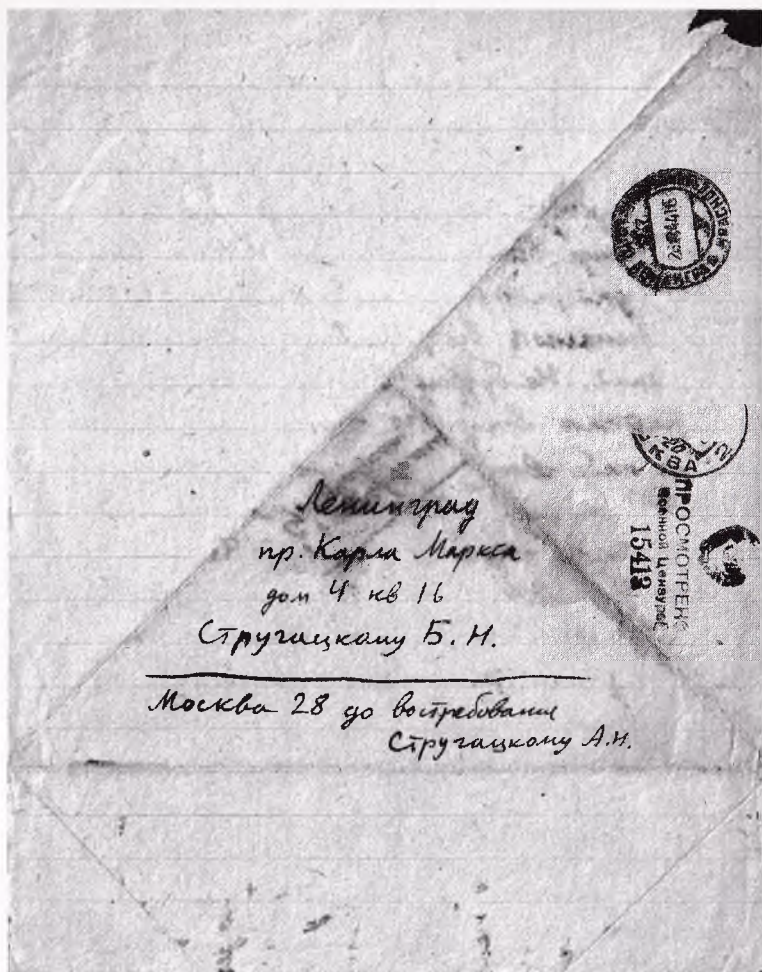 Ленинград
пр. Карла Маркса
дом 4 кв 16
Стругацкому Б. Н.
Москва 28 до востребования
Стругацкому А.Н.
ПРОСМОТРЕНО
Военной Цензурой
15412